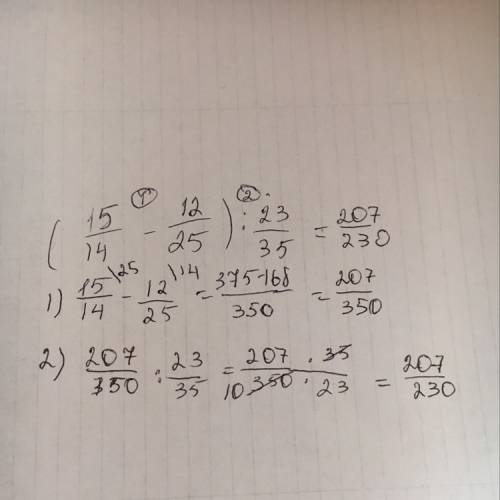 (15/14 - ① 12/25) ② : 23/35 = 207/230
1) 15/14 \25 - 12/25 \14 = 375-168/350 = 207/350
2) 207/350 : 23/35 = 207 · 35/10 350 · 23 = 207/230